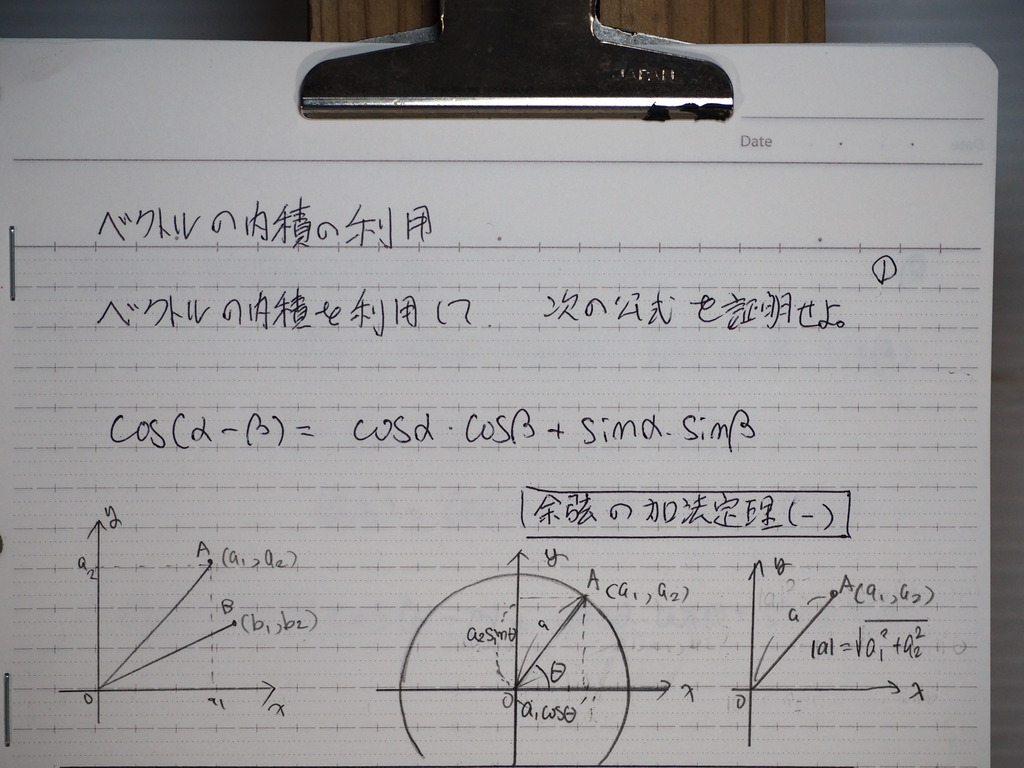 JAPAN
Date
ベクトルの内積の利用
①
ベクトルの内積を利用して 次の公式を証明せよ。
cos(α-β)= cosα・cosβ+sinα・sinβ
余弦の加法定理(-)
y
A (a₁, a₂)
a₂
B (b₁, b₂)
0
a₁
x
y
A (a₁, a₂)
a₂sinθ
a
θ
0
a₁cosθ
x
y
A(a₁, a₂)
a
|a|=√a₁²+a₂²
0
x